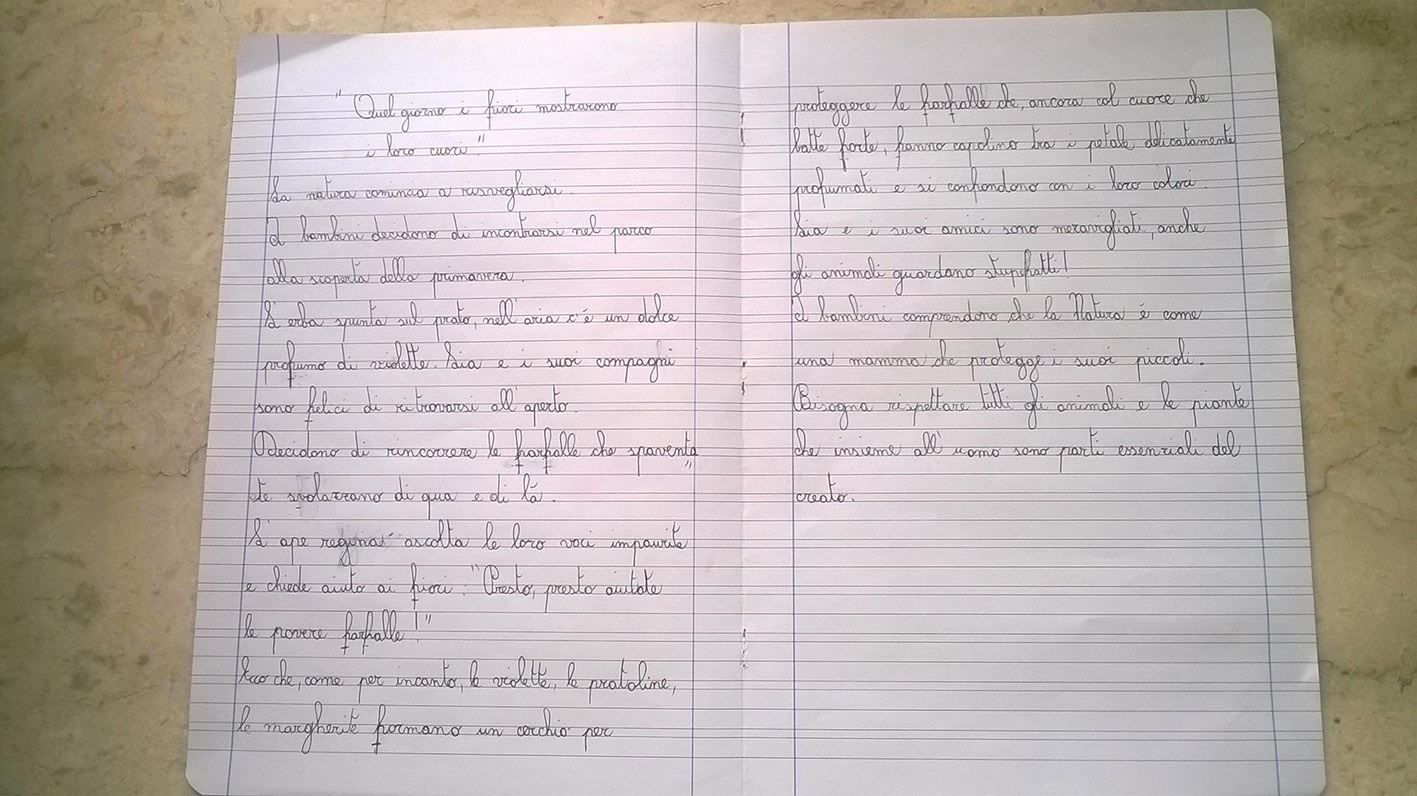 "Quel giorno i fiori mostrarono
i loro cuori"
La natura comincia a risvegliarsi.
I bambini decidono di incontrarsi nel parco
alla scoperta della primavera.
L'erba spunta sul prato, nell'aria c'é un dolce
profumo di violette. Lia e i suoi compagni
sono felici di ritrovarsi all'aperto.
Decidono di rincorrere le farfalle che spaventa"
te svolazzano di qua e di lá.
L'ape regina ascolta le loro voci impaurite
e chiede aiuto ai fiori: "Presto, presto aiutate
le povere farfalle!"
Ecco che, come per incanto, le violette, le pratoline,
le margherite formano un cerchio per
proteggere le farfalle che, ancora col cuore che
batte forte, fanno capolino tra i petali delicatamente
profumati e si confondono con i loro colori.
Lia e i suoi amici sono meravigliati, anche
gli animali guardano stupefatti!
I bambini comprendono che la Natura é come
una mamma che protegge i suoi piccoli.
Bisogna rispettare tutti gli animali e le piante
che insieme all'uomo sono parti essenziali del
creato.